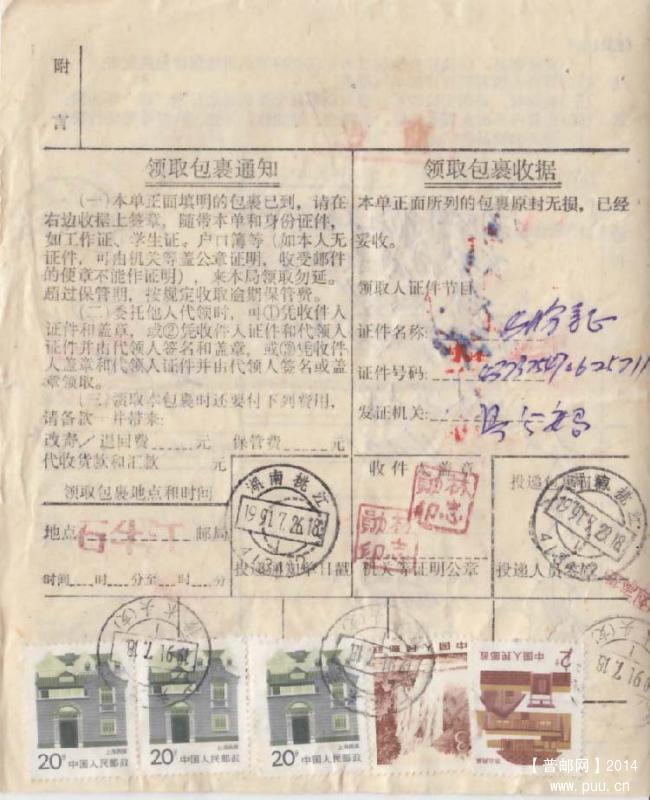 附
言
领取包裹通知
(一)本单正面填明的包裹已到，请在
右边收据上签章，随带本单和身份证件，
如工作证、学生证。户口簿等(如本人无
证件，可由机关等盖公章证明，收受邮件
的便章不能作证明)，来本局领取勿延。
超过保管期，按规定收取逾期保管费。
(二)委托他人代领时，可①凭收件人
证件和盖章，或②凭收件人证件和代领人
证件并由代领人签名和盖章，或③凭收件
人盖章和代领人证件并由代领人签名或盖
章领取。
(三)领取本包裹时还要付下列费用，
请备款一并带来：
改寄／退回费______元 保管费______元
代收货款和汇款______元
领取包裹地点和时间
地点 石牛江 邮局
时间___时___分至___时___分
领取包裹收据
本单正面所列的包裹原封无损，已经
妥收。
领取人证件节目
证件名称：
证件号码：
发证机关：
收件人盖章
机关等证明公章
湖南桃江
1991.7.26.18
投递人员签章
1991.7.18
1991.7.18
1991.7.18
20分
中国人民邮政
20分
中国人民邮政
20分
中国人民邮政
中国人民邮政
中国人民邮政
2分
【普邮网】2014
www.puu.cn